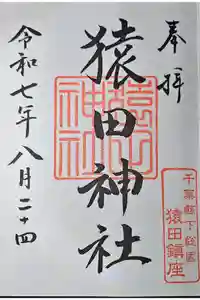 奉拝
猿田神社
猿田神社
令和七年八月二十四
千葉縣下総國
猿田鎮座